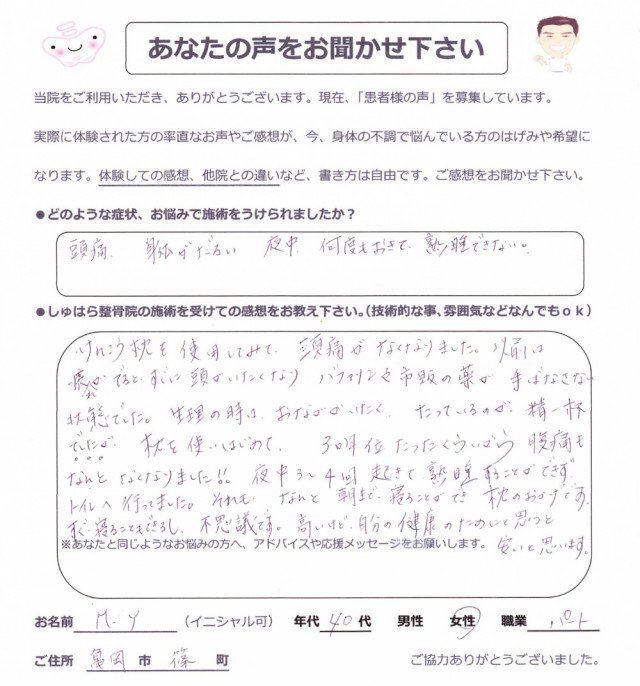 あなたの声をお聞かせ下さい
当院をご利用いただき、ありがとうございます。現在、「患者様の声」を募集しています。
実際に体験された方の率直なお声やご感想が、今、身体の不調で悩んでいる方のはげみや希望に
なります。体験しての感想、他院との違いなど、書き方は自由です。ご感想をお聞かせ下さい。
●どのような症状、お悩みで施術をうけられましたか？
頭痛、身体がだるい 夜中、何度もおきて、熟睡できない。
●しゅはら整骨院の施術を受けての感想をお教え下さい。（技術的な事、雰囲気などなんでもｏｋ）
けんこう枕を使用してみて、頭痛がなくなりました。以前は
疲れがでると、すぐに頭がいたくなり バファリンや市販の薬が手ばなさない
状態でした。生理の時は、おなかがいたく、たっているのが、精一杯
でしたが、枕を使いはじめて、3ヵ月位たったくらいから腹痛も
なんとなくなりました!! 夜中3〜4回起きて熟睡することができず
トイレへ行ってました。それも、なんと朝まで寝ることができ枕のおかげです。
すぐ寝ることもできるし、不思議です。高いけど、自分の健康のためにと思うと
安いと思います。
※あなたと同じようなお悩みの方へ、アドバイスや応援メッセージをお願いします。
お名前 M.Y （イニシャル可） 年代 40 代 男性 女性 職業 パート
ご住所 亀岡 市 篠 町 ご協力ありがとうございました。